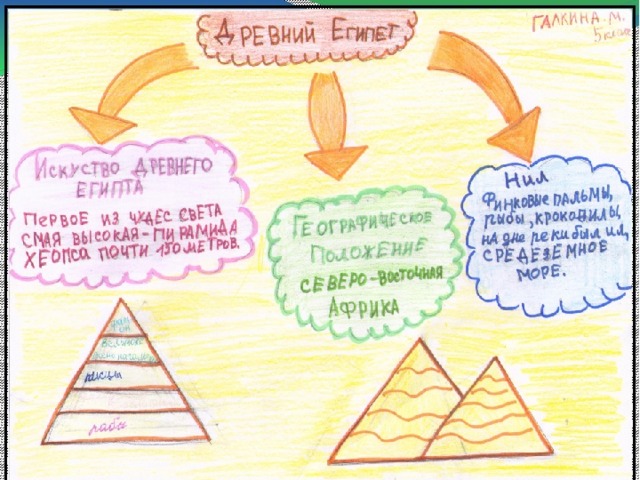 Древний Египет
Галкина. М.
5 класс
Искуство древнего
Египта
Первое из чудес света
смая высокая-пирамида
Хеопса почти 150 метров.
Географическое
положение
северо-восточная
Африка
Нил
Финковые пальмы,
рыбы, крокодилы,
на дне реки был ил,
средеземное
море.
вельможи
писцы
рабы